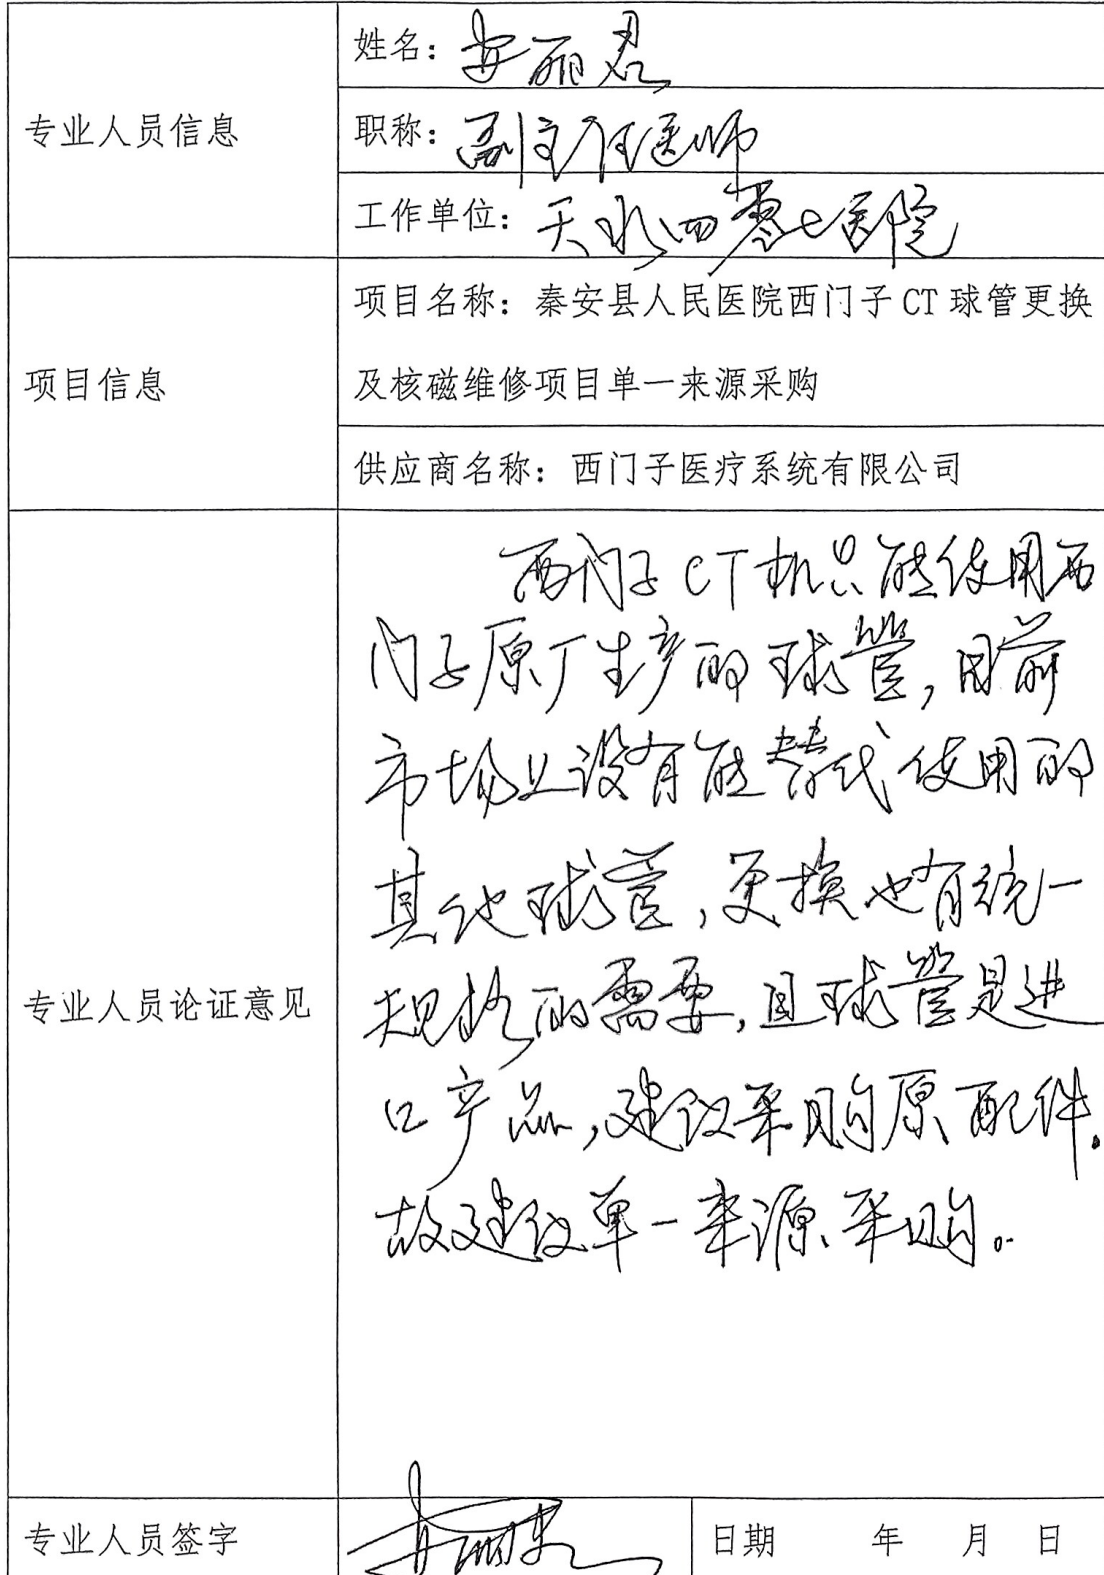 专业人员信息
姓名：安丽君
职称：副主任医师
工作单位：天水四零七医院
项目信息
项目名称：秦安县人民医院西门子 CT 球管更换
及核磁维修项目单一来源采购
供应商名称：西门子医疗系统有限公司
专业人员论证意见
西门子CT机只能使用西
门子原厂生产的球管，目前
市场上没有能替代使用的
其他球管，更换也有统一
规格的需要，且球管是进
口产品，建议采购原配件.
故建议单一来源采购。
专业人员签字
安丽君
日期 年 月 日